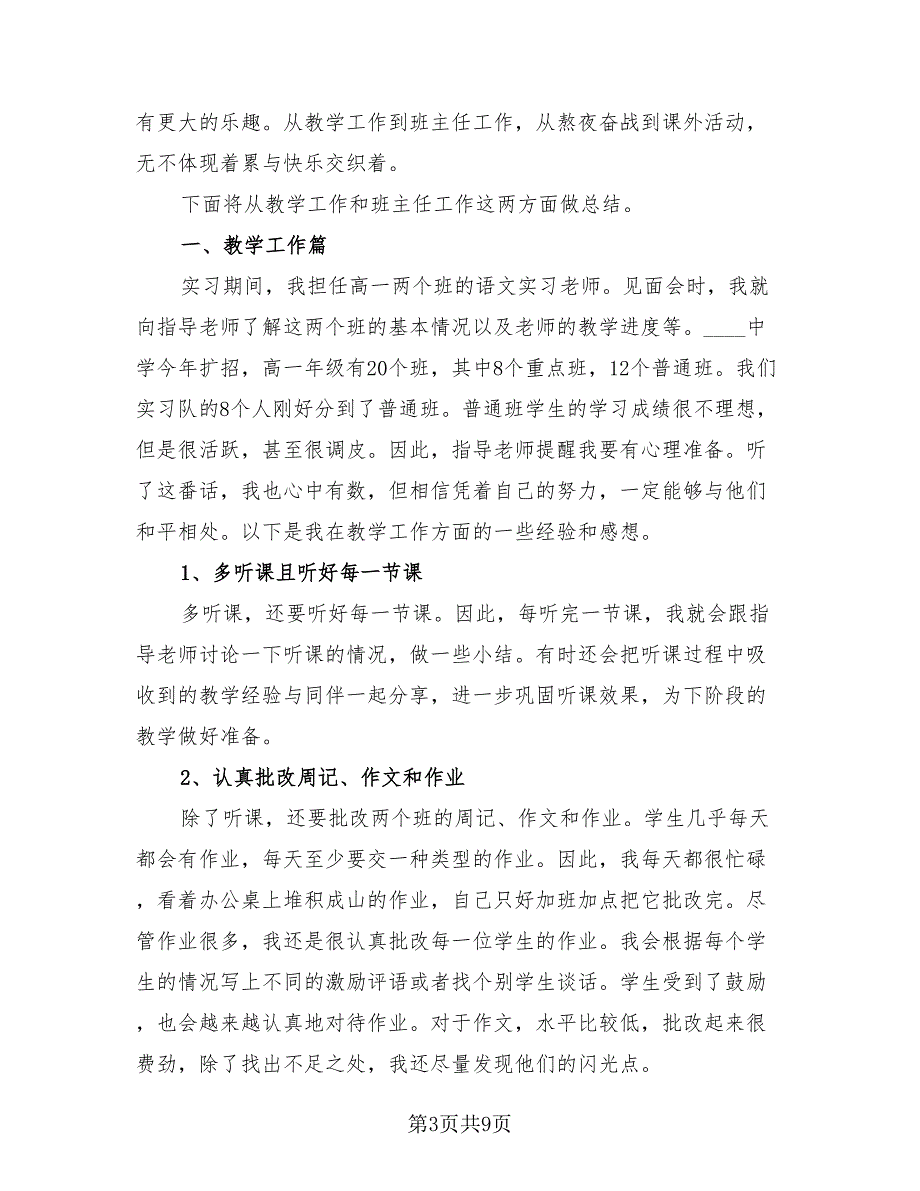 有更大的乐趣。从教学工作到班主任工作，从熬夜奋战到课外活动，
无不体现着累与快乐交织着。
下面将从教学工作和班主任工作这两方面做总结。
一、教学工作篇
实习期间，我担任高一两个班的语文实习老师。见面会时，我就
向指导老师了解这两个班的基本情况以及老师的教学进度等。____中
学今年扩招，高一年级有20个班，其中8个重点班，12个普通班。我们
实习队的8个人刚好分到了普通班。普通班学生的学习成绩很不理想，
但是很活跃，甚至很调皮。因此，指导老师提醒我要有心理准备。听
了这番话，我也心中有数，但相信凭着自己的努力，一定能够与他们
和平相处。以下是我在教学工作方面的一些经验和感想。
1、多听课且听好每一节课
多听课，还要听好每一节课。因此，每听完一节课，我就会跟指
导老师讨论一下听课的情况，做一些小结。有时还会把听课过程中吸
收到的教学经验与同伴一起分享，进一步巩固听课效果，为下阶段的
教学做好准备。
2、认真批改周记、作文和作业
除了听课，还要批改两个班的周记、作文和作业。学生几乎每天
都会有作业，每天至少要交一种类型的作业。因此，我每天都很忙碌
，看着办公桌上堆积成山的作业，自己只好加班加点把它批改完。尽
管作业很多，我还是很认真批改每一位学生的作业。我会根据每个学
生的情况写上不同的激励评语或者找个别学生谈话。学生受到了鼓励
，也会越来越认真地对待作业。对于作文，水平比较低，批改起来很
费劲，除了找出不足之处，我还尽量发现他们的闪光点。
第3页共9页